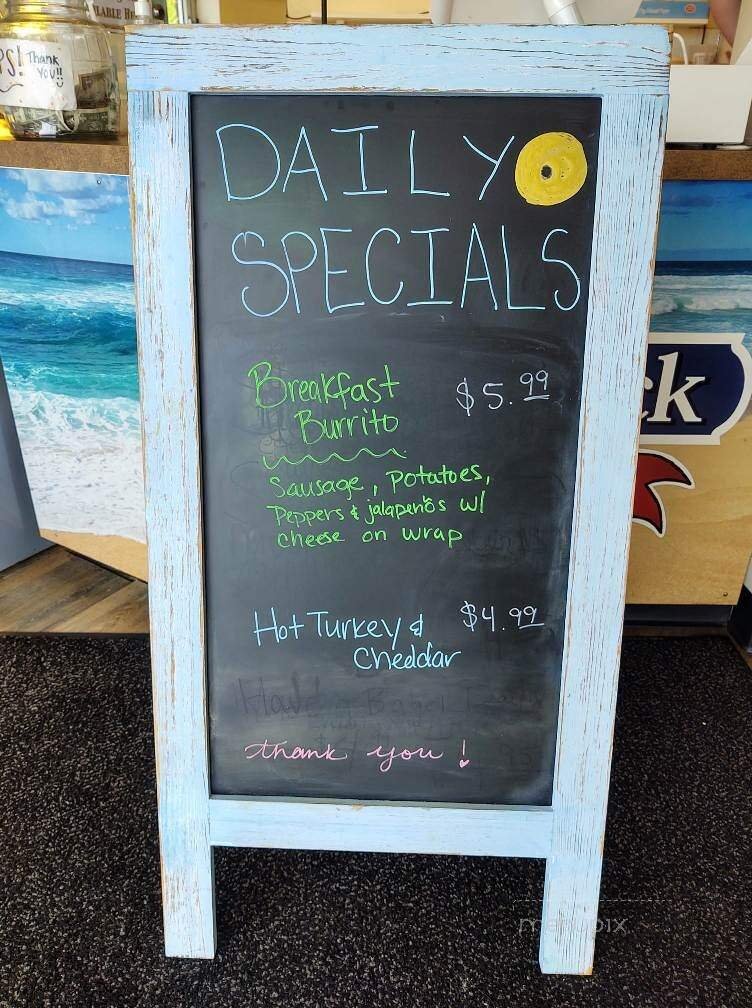 PS! Thank
YOU!!
DAILY
SPECIALS
Breakfast $5.99
Burrito
Sausage, Potatoes,
Peppers & jalapeños w/
cheese on wrap
Hot Turkey & $4.99
Cheddar
thank you!
ck